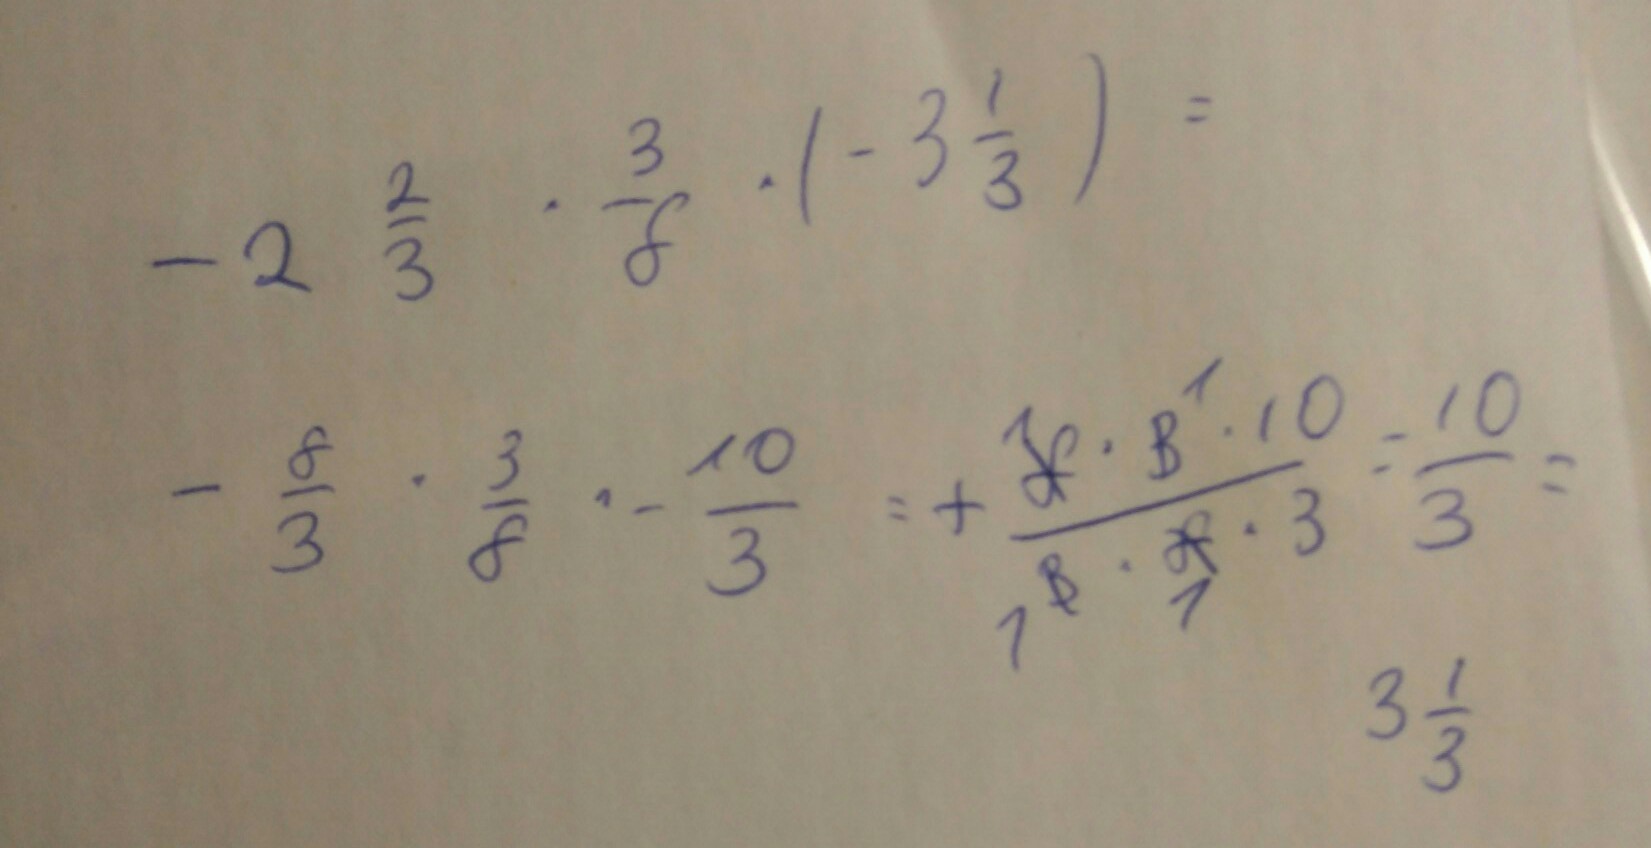 -2 2/3 · 3/8 · (-3 1/3) =
- 8/3 · 3/8 · - 10/3 = + 8 1 · 3 1 · 10 / 3 1 · 8 1 · 3 = 10/3 =
3 1/3